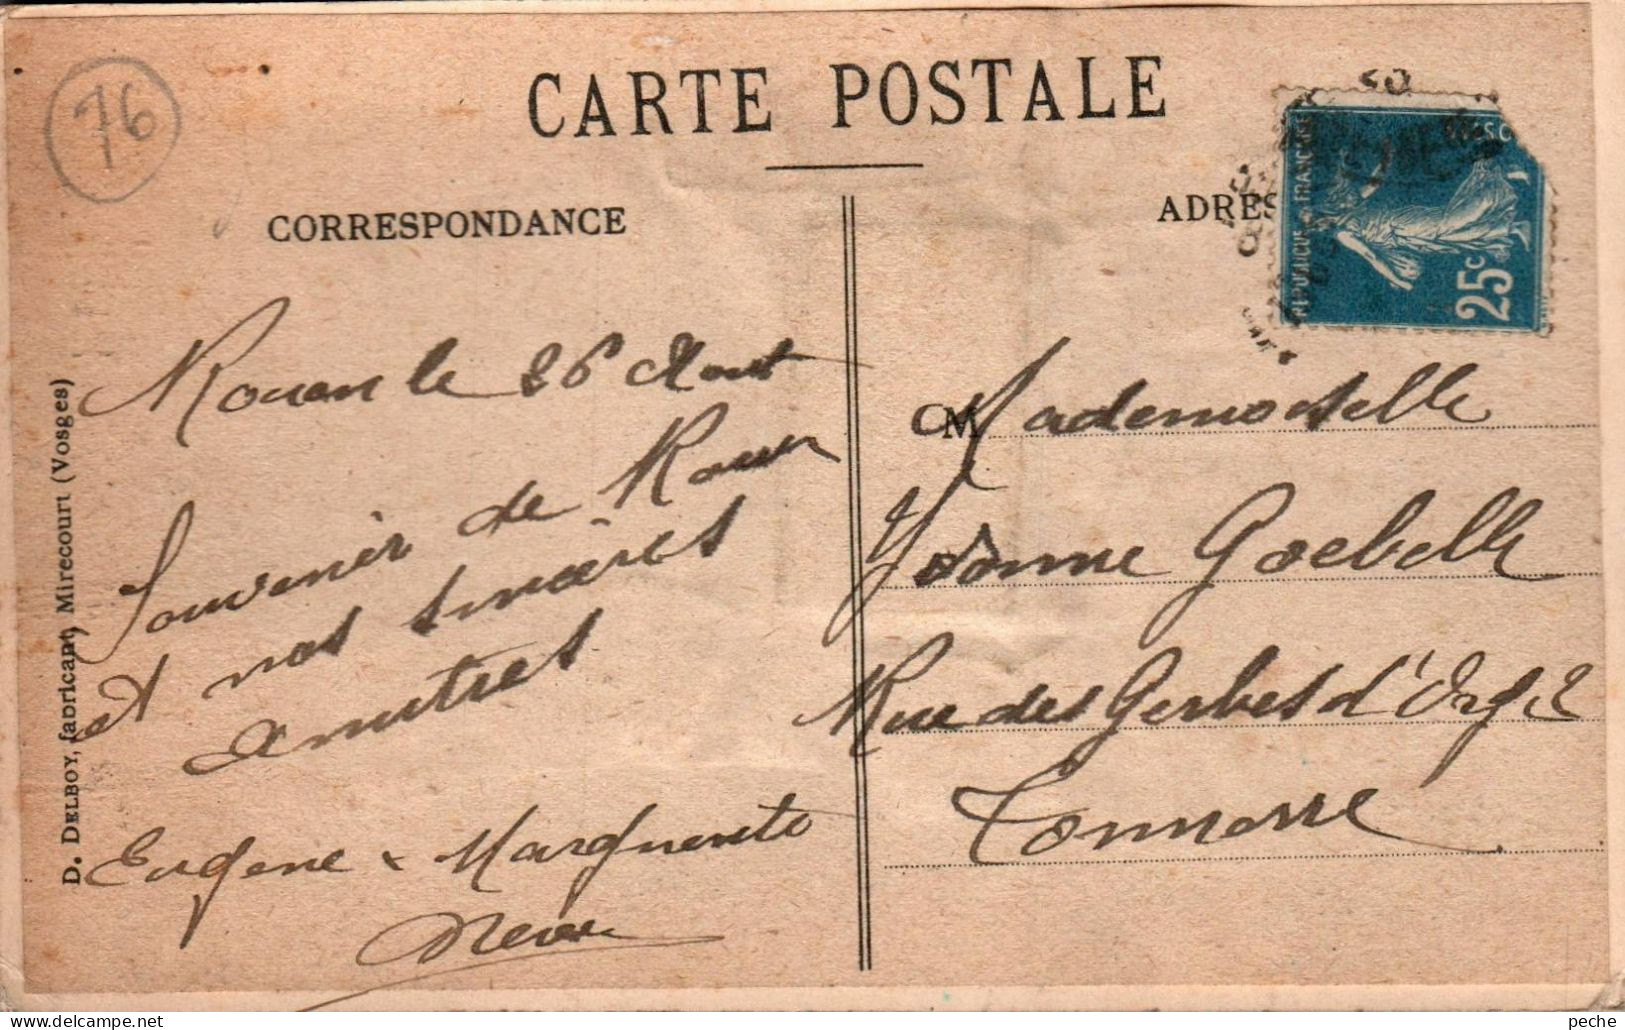 76
CARTE POSTALE
CORRESPONDANCE
ADRES
REPUBLIQUE FRANÇAISE
25c
D. DELBOY, fabricant, Mirecourt (Vosges)
Rouen le 26 Aout
Souvenir de Rouen
et nos sincères
Amitres
Eugene & Marguerite
M
Mademoiselle
Yvonne Goebelle
Rue des Gerbes d'Orge
Tonnerre
peche